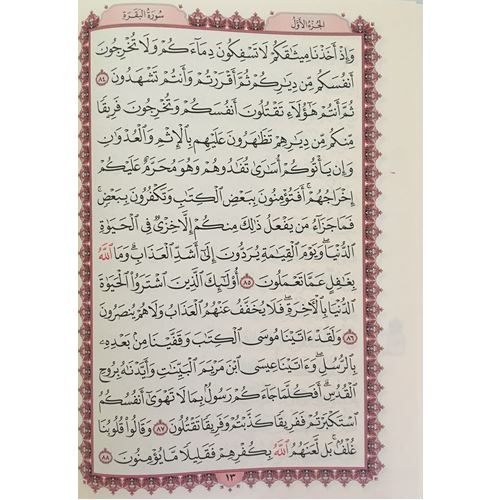 الجزء الأول
سورة البقرة
وَإِذْ أَخَذْنَا مِيثَٰقَكُمْ لَا تَسْفِكُونَ دِمَآءَكُمْ وَلَا تُخْرِجُونَ
أَنفُسَكُم مِّن دِيَٰرِكُمْ ثُمَّ أَقْرَرْتُمْ وَأَنتُمْ تَشْهَدُونَ ٨٤
ثُمَّ أَنتُمْ هَٰٓؤُلَآءِ تَقْتُلُونَ أَنفُسَكُمْ وَتُخْرِجُونَ فَرِيقًا
مِّنكُم مِّن دِيَٰرِهِمْ تَظَٰهَرُونَ عَلَيْهِم بِٱلْإِثْمِ وَٱلْعُدْوَٰنِ
وَإِن يَأْتُوكُمْ أُسَٰرَىٰ تُفَٰدُوهُمْ وَهُوَ مُحَرَّمٌ عَلَيْكُمْ
إِخْرَاجُهُمْ ۚ أَفَتُؤْمِنُونَ بِبَعْضِ ٱلْكِتَٰبِ وَتَكْفُرُونَ بِبَعْضٍ ۚ
فَمَا جَزَآءُ مَن يَفْعَلُ ذَٰلِكَ مِنكُمْ إِلَّا خِزْيٌ فِى ٱلْحَيَوٰةِ
ٱلدُّنْيَا ۖ وَيَوْمَ ٱلْقِيَٰمَةِ يُرَدُّونَ إِلَىٰٓ أَشَدِّ ٱلْعَذَابِ ۗ وَمَا ٱللَّهُ
بِغَٰفِلٍ عَمَّا تَعْمَلُونَ ٨٥ أُو۟لَٰٓئِكَ ٱلَّذِينَ ٱشْتَرَوُا۟ ٱلْحَيَوٰةَ
ٱلدُّنْيَا بِٱلْـَٔاخِرَةِ ۖ فَلَا يُخَفَّفُ عَنْهُمُ ٱلْعَذَابُ وَلَا هُمْ يُنصَرُونَ
٨٦ وَلَقَدْ ءَاتَيْنَا مُوسَى ٱلْكِتَٰبَ وَقَفَّيْنَا مِنۢ بَعْدِهِۦ
بِٱلرُّسُلِ ۖ وَءَاتَيْنَا عِيسَى ٱبْنَ مَرْيَمَ ٱلْبَيِّنَٰتِ وَأَيَّدْنَٰهُ بِرُوحِ
ٱلْقُدُسِ ۗ أَفَكُلَّمَا جَآءَكُمْ رَسُولٌۢ بِمَا لَا تَهْوَىٰٓ أَنفُسُكُمُ
ٱسْتَكْبَرْتُمْ فَفَرِيقًا كَذَّبْتُمْ وَفَرِيقًا تَقْتُلُونَ ٨٧ وَقَالُوا۟ قُلُوبُنَا
غُلْفٌۢ ۚ بَل لَّعَنَهُمُ ٱللَّهُ بِكُفْرِهِمْ فَقَلِيلًا مَّا يُؤْمِنُونَ ٨٨
١٣